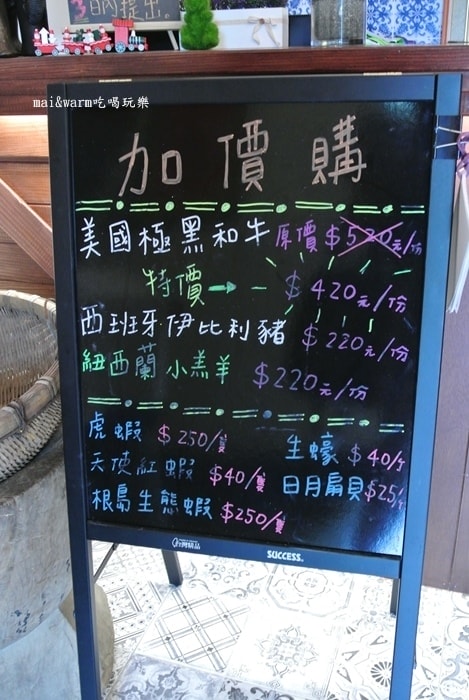 3日內提出
mai&warm吃喝玩樂
加價購
美國極黑和牛 原價 $520元/份
特價→ $420元/份
西班牙伊比利豬 $220元/份
紐西蘭小羔羊 $220元/份
虎蝦 $250/隻
生蠔 $40/
天使紅蝦 $40/隻
日月扇貝 $25/
根島生態蝦 $250/隻
SUCCESS